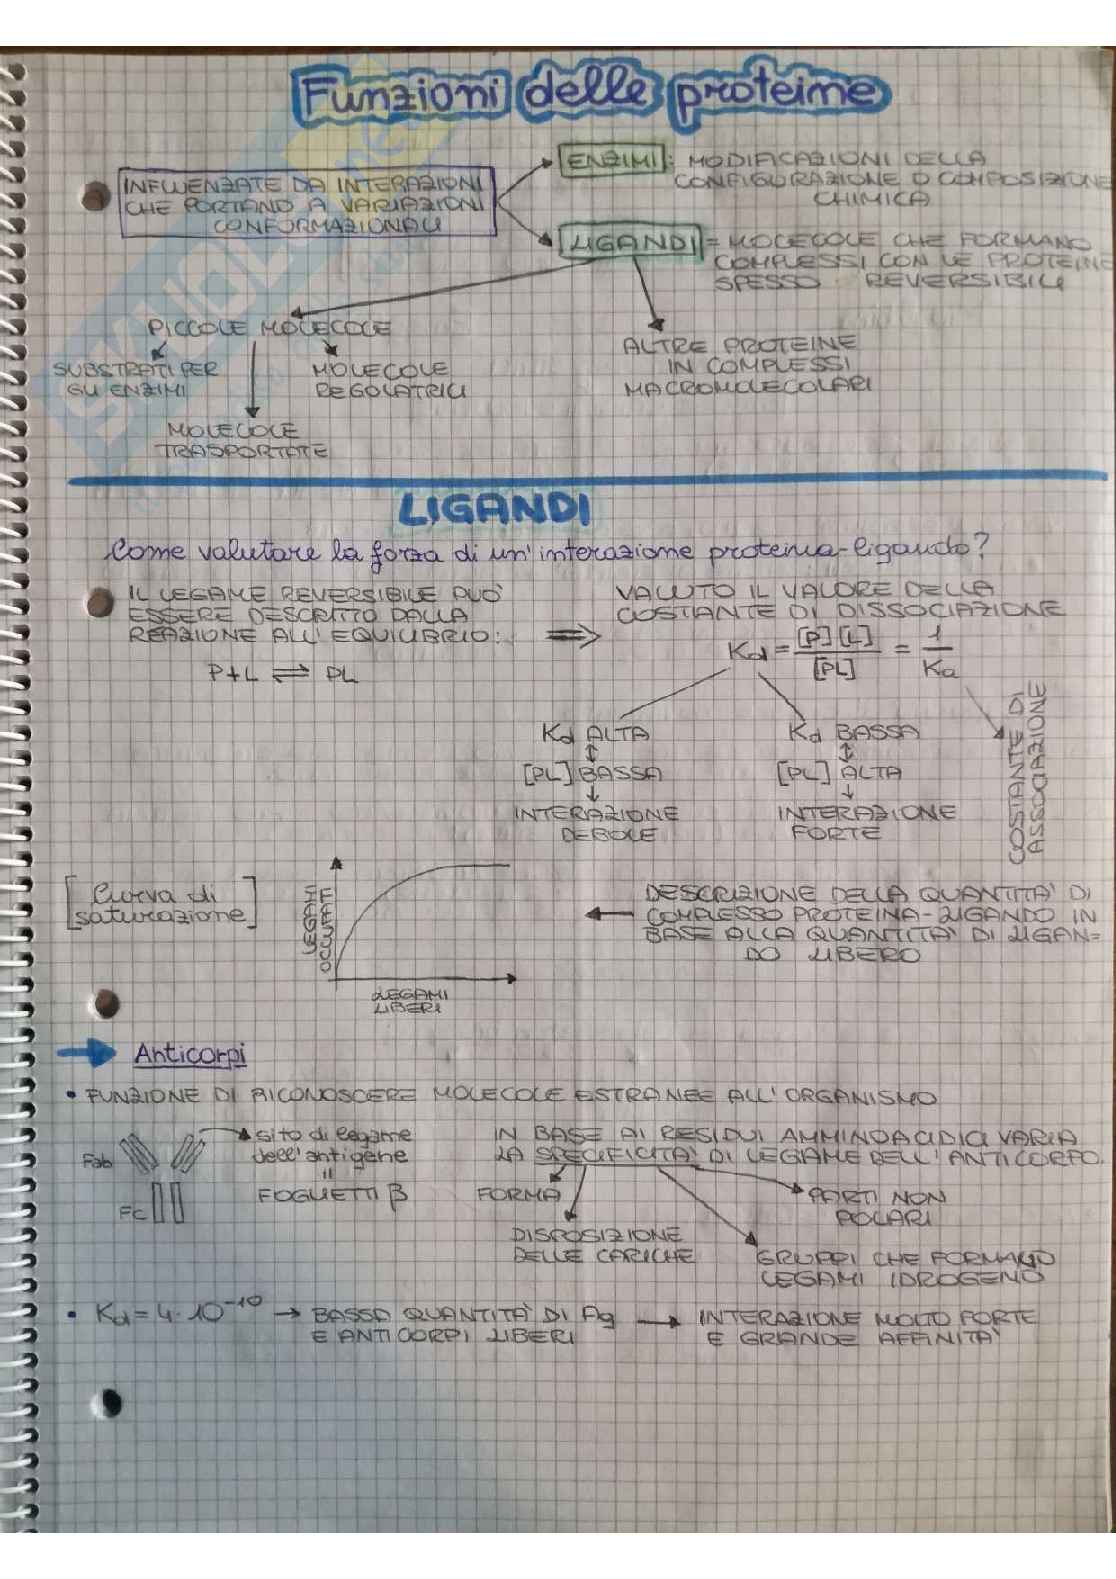 Funzioni delle proteine
INFLUENZATE DA INTERAZIONI
CHE PORTANO A VARIAZIONI
CONFORMAZIONALI
ENZIMI: MODIFICAZIONI DELLA
CONFIGURAZIONE O COMPOSIZIONE
CHIMICA
LIGANDI = MOLECOLE CHE FORMANO
COMPLESSI CON LE PROTEINE
SPESSO REVERSIBILI
PICCOLE MOLECOLE
SUBSTRATI PER
GLI ENZIMI
MOLECOLE
REGOLATRICI
MOLECOLE
TRASPORTATE
ALTRE PROTEINE
IN COMPLESSI
MACROMOLECOLARI
LIGANDI
Come valutare la forza di un'interazione proteina-ligando?
IL LEGAME REVERSIBILE PUO'
ESSERE DESCRITTO DALLA
REAZIONE ALL'EQUILIBRIO:
P+L ⇌ PL
⇒
VALUTO IL VALORE DELLA
COSTANTE DI DISSOCIAZIONE
Kd = [P][L]/[PL] = 1/Ka
COSTANTE DI
ASSOCIAZIONE
Kd ALTA
↕
[PL] BASSA
↓
INTERAZIONE
DEBOLE
Kd BASSA
↕
[PL] ALTA
↓
INTERAZIONE
FORTE
[Curva di
saturazione]
LEGAMI
OCCUPATI
LEGAMI
LIBERI
← DESCRIZIONE DELLA QUANTITA' DI
COMPLESSO PROTEINA-LIGANDO IN
BASE ALLA QUANTITA' DI LIGAN=
DO LIBERO
→ Anticorpi
• FUNZIONE DI RICONOSCERE MOLECOLE ESTRANEE ALL'ORGANISMO
Fab
FC
sito di legame
dell'antigene
"
FOGLIETTI β
IN BASE AI RESIDUI AMMINOACIDICI VARIA
LA SPECIFICITA' DI LEGAME DELL'ANTICORPO.
FORMA
DISPOSIZIONE
DELLE CARICHE
GRUPPI CHE FORMANO
LEGAMI IDROGENO
PARTI NON
POLARI
• Kd = 4·10⁻¹⁰ → BASSA QUANTITA' DI Ag
E ANTICORPI LIBERI
→ INTERAZIONE MOLTO FORTE
E GRANDE AFFINITA'